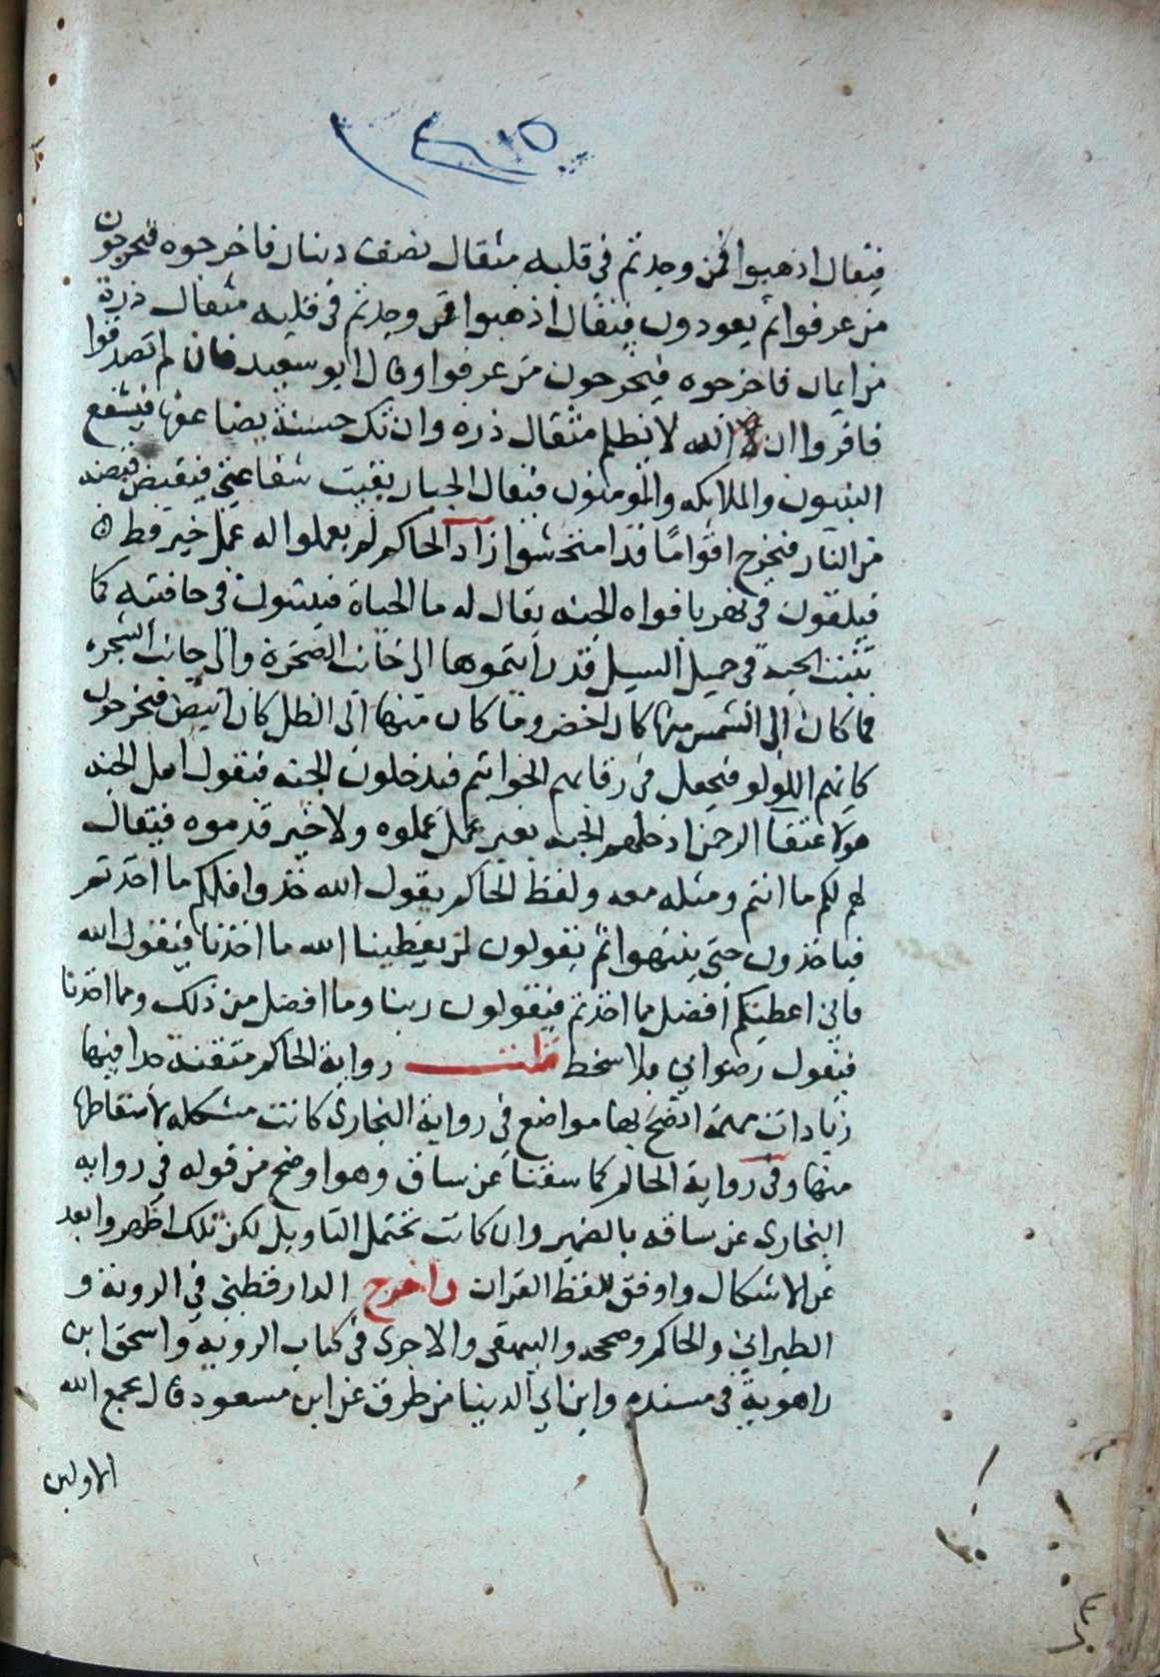 فيقال اذهبوا فمن وجدتم في قلبه مثقال نصف دينار فاخرجوه فيخرجون
من عرفوا ثم يعودون فيقال اذهبوا فمن وجدتم في قلبه مثقال ذرة
من ايمان فاخرجوه فيخرجون من عرفوا وقال ابو سعيد فان لم تصدقوا
فاقروا ان الله لا يظلم مثقال ذره وان تك حسنة يضاعفها فيشفع
النبيون والملايكه والمومنون فيقال الجبار بقيت شفاعتي فيقبض قبضه
من النار فيخرج اقواما قد امتحشوا زاد الحاكم لم يعملوا له عمل خير قط
فيلقون في نهر بافواه الجنه يقال له ما الحياة فينبتون في حافتيه كما
تنبت الحبه في حميل السيل قد رايتموها الى جانب الصخرة والى جانب الشجره
فما كان الى الشمس منها كان اخضر وما كان منها الى الظل كان ابيض فيخرجون
كانهم اللولو فيجعل في رقابهم الخواتم فيدخلون الجنه فيقول اهل الجنه
هولا عتقا الرحمن ادخلهم الجنه بغير عمل عملوه ولا خير قدموه فيقال
لهم لكم ما انتم ومثله معه ولفظ الحاكم يقول الله خذوا فلكم ما اخذتم
فياخذون حتى ينتهوا ثم يقولون لن يعطينا الله ما اخذنا فيقول الله
فاني اعطيتكم افضل مما اخذتم فيقولون ربنا وما افضل من ذلك ومما اخذنا
فيقول رضواني فلا سخط قلت رواية الحاكم متقنة جدا فيها
زيادات مهمة اتضح بها مواضع في رواية البخاري كانت مشكله لاسقاطها
منها وفي رواية الحاكم كما سقنا عن ساق وهو اوضح من قوله في روايه
البخاري عن ساقه بالضمير وان كانت تحتمل التاويل لكن تلك اظهر وابعد
عن الاشكال واوفق للفظ القران واخرج الدارقطني في الروية و
الطبراني والحاكم وصححه والبيهقي والاجري في كتاب الروية واسحق ابن
راهوية في مسنده وابن ابي الدنيا من طرق عن ابن مسعود قال يجمع الله
الاولين